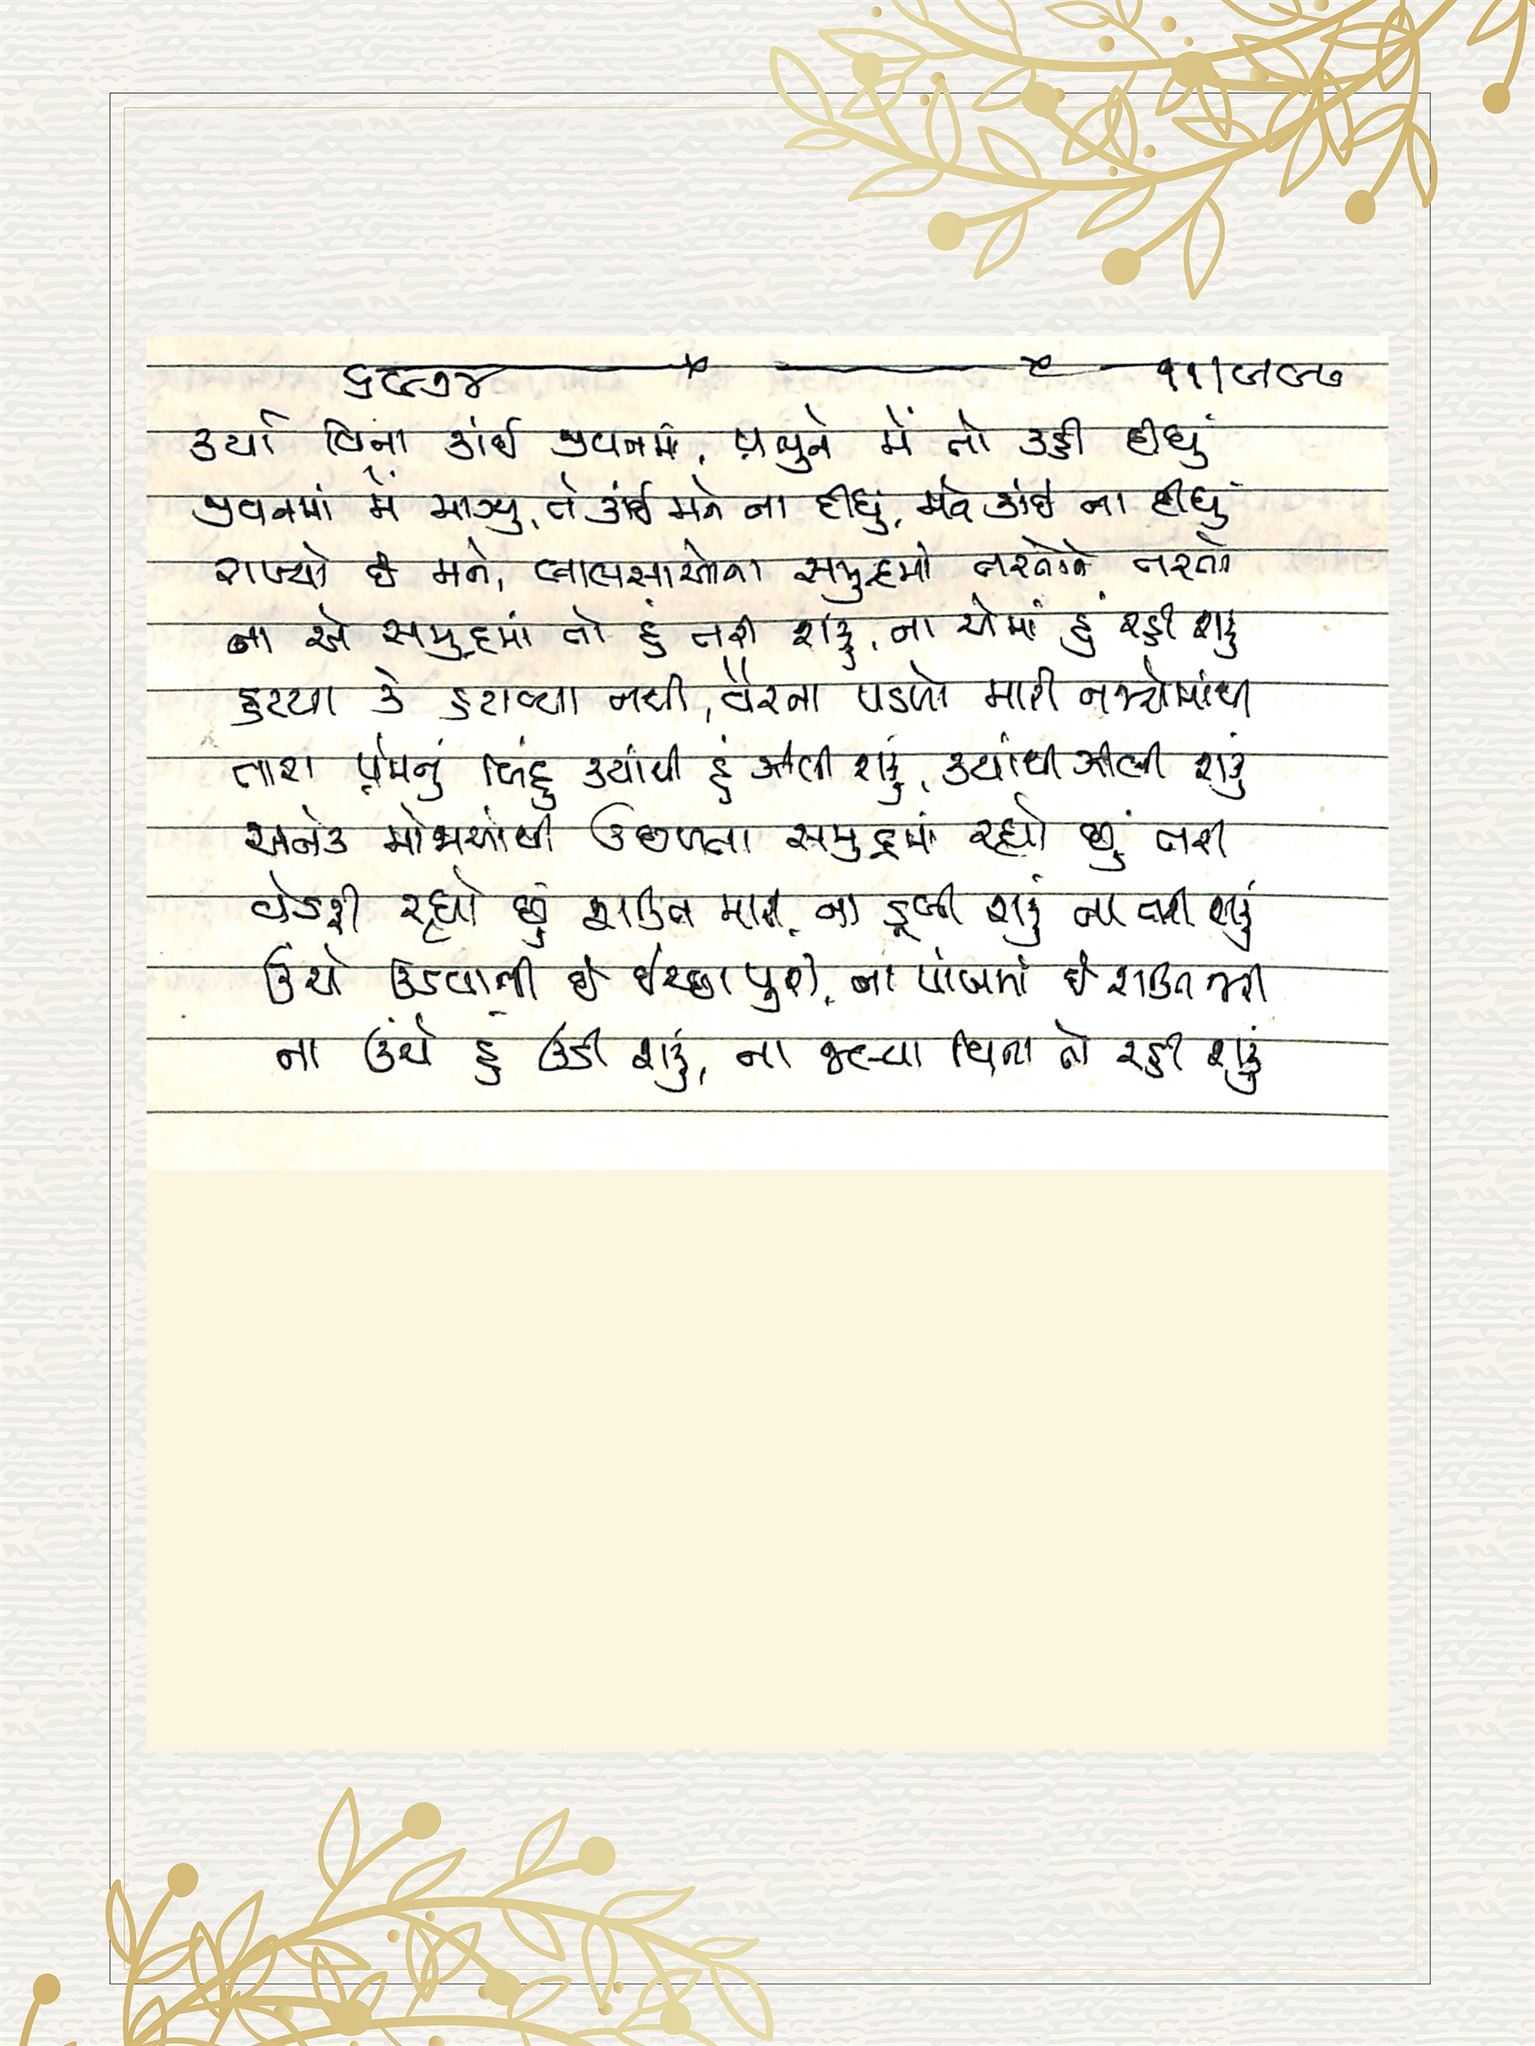 ૬૯૭૪ ૧૧|૭|૯૭
કર્યા વિના કાંઈ જીવનમાં, પ્રભુને મેં તો કહી દીધું
જીવનમાં મેં માગ્યું, તે કાંઈ મને ના દીધું, મને કાંઈ ના દીધું
રાખ્યો છે મને, લાલસાઓના સમુદ્રમાં તરતોને તરતો
ના એ સમુદ્રમાં તો હું તરી શકું, ના એમાં હું રહી શકું
હટયા કે હટાવ્યા નથી, વૈરના પડળો મારી નજરોમાંથી
તારા પ્રેમનું બિંદુ કયાંથી હું ઝીલી શકું, કયાંથી ઝીલી શકું
અનેક મોજાઓથી ઉછળતા સમુદ્રમાં રહ્યો છું તરી
વેડફી રહ્યો છું શક્તિ મારી, ના ડૂબી શકું ના તરી શકું
ઉંચે ઉડવાની છે ઈચ્છા પુરી, ના પાંખમાં છે શક્તિ ભરી
ના ઉંચે હું ઉડી શકું, ના ઉડવા વિના તો રહી શકું